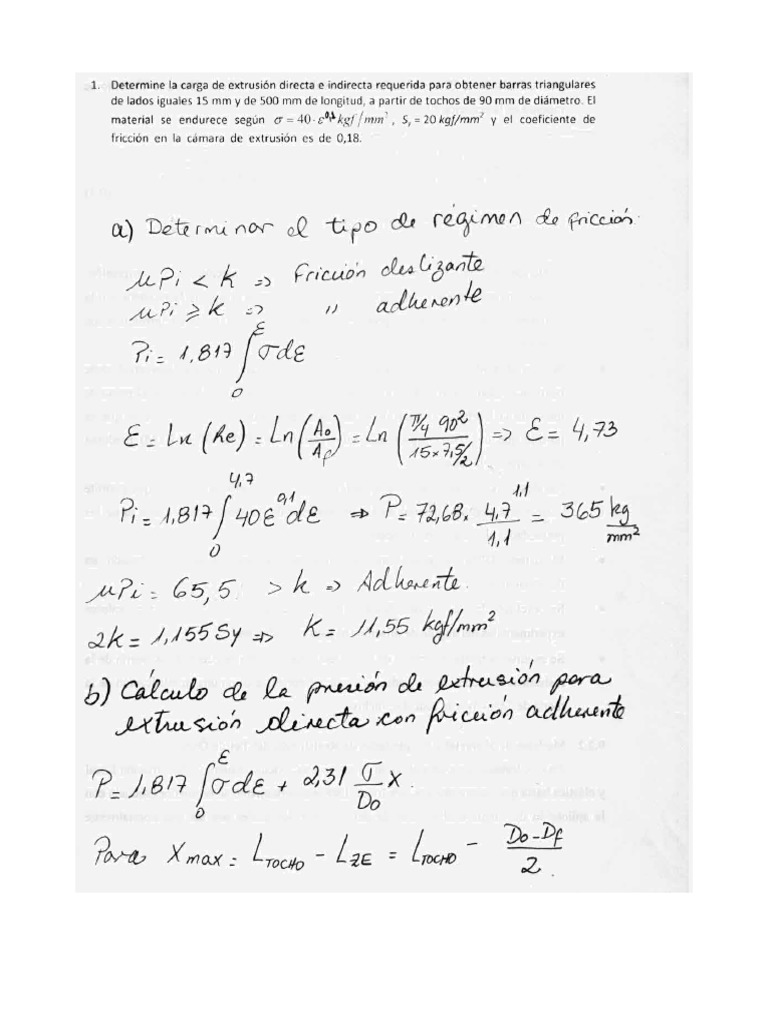 1. Determine la carga de extrusión directa e indirecta requerida para obtener barras triangulares
de lados iguales 15 mm y de 500 mm de longitud, a partir de tochos de 90 mm de diámetro. El
material se endurece según σ = 40 · ε^0,1 kgf/mm², Sy = 20 kgf/mm² y el coeficiente de
fricción en la cámara de extrusión es de 0,18.
a) Determinar el tipo de régimen de fricción
μPi < k => Fricción deslizante
μPi ≥ k => " adherente
Pi = 1,817 ∫₀^ε σdε
ε = Ln (Re) = Ln (Ao/Af) = Ln (π/4 90² / 15×7,5/2) => ε = 4,73
Pi = 1,817 ∫₀^4,7 40ε^0,1 dε => P = 72,68 × 4,7^1,1/1,1 = 365 kg/mm²
μPi = 65,5 > k => Adherente.
2k = 1,155 Sy => k = 11,55 kgf/mm²
b) Cálculo de la presión de extrusión para
extrusión directa con fricción adherente
P = 1,817 ∫₀^ε σdε + 2,31 σ/Do x.
Para Xmax = L_TOCHO - L_ZE = L_TOCHO - (Do - Df)/2.